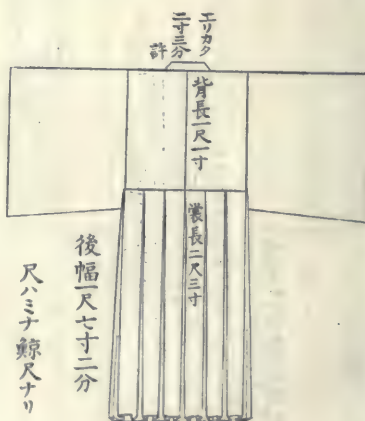 エリカタ
二寸三分
許
背長一尺一寸
裳長二尺三寸
後幅一尺七寸二分
尺ハミナ鯨尺ナリ